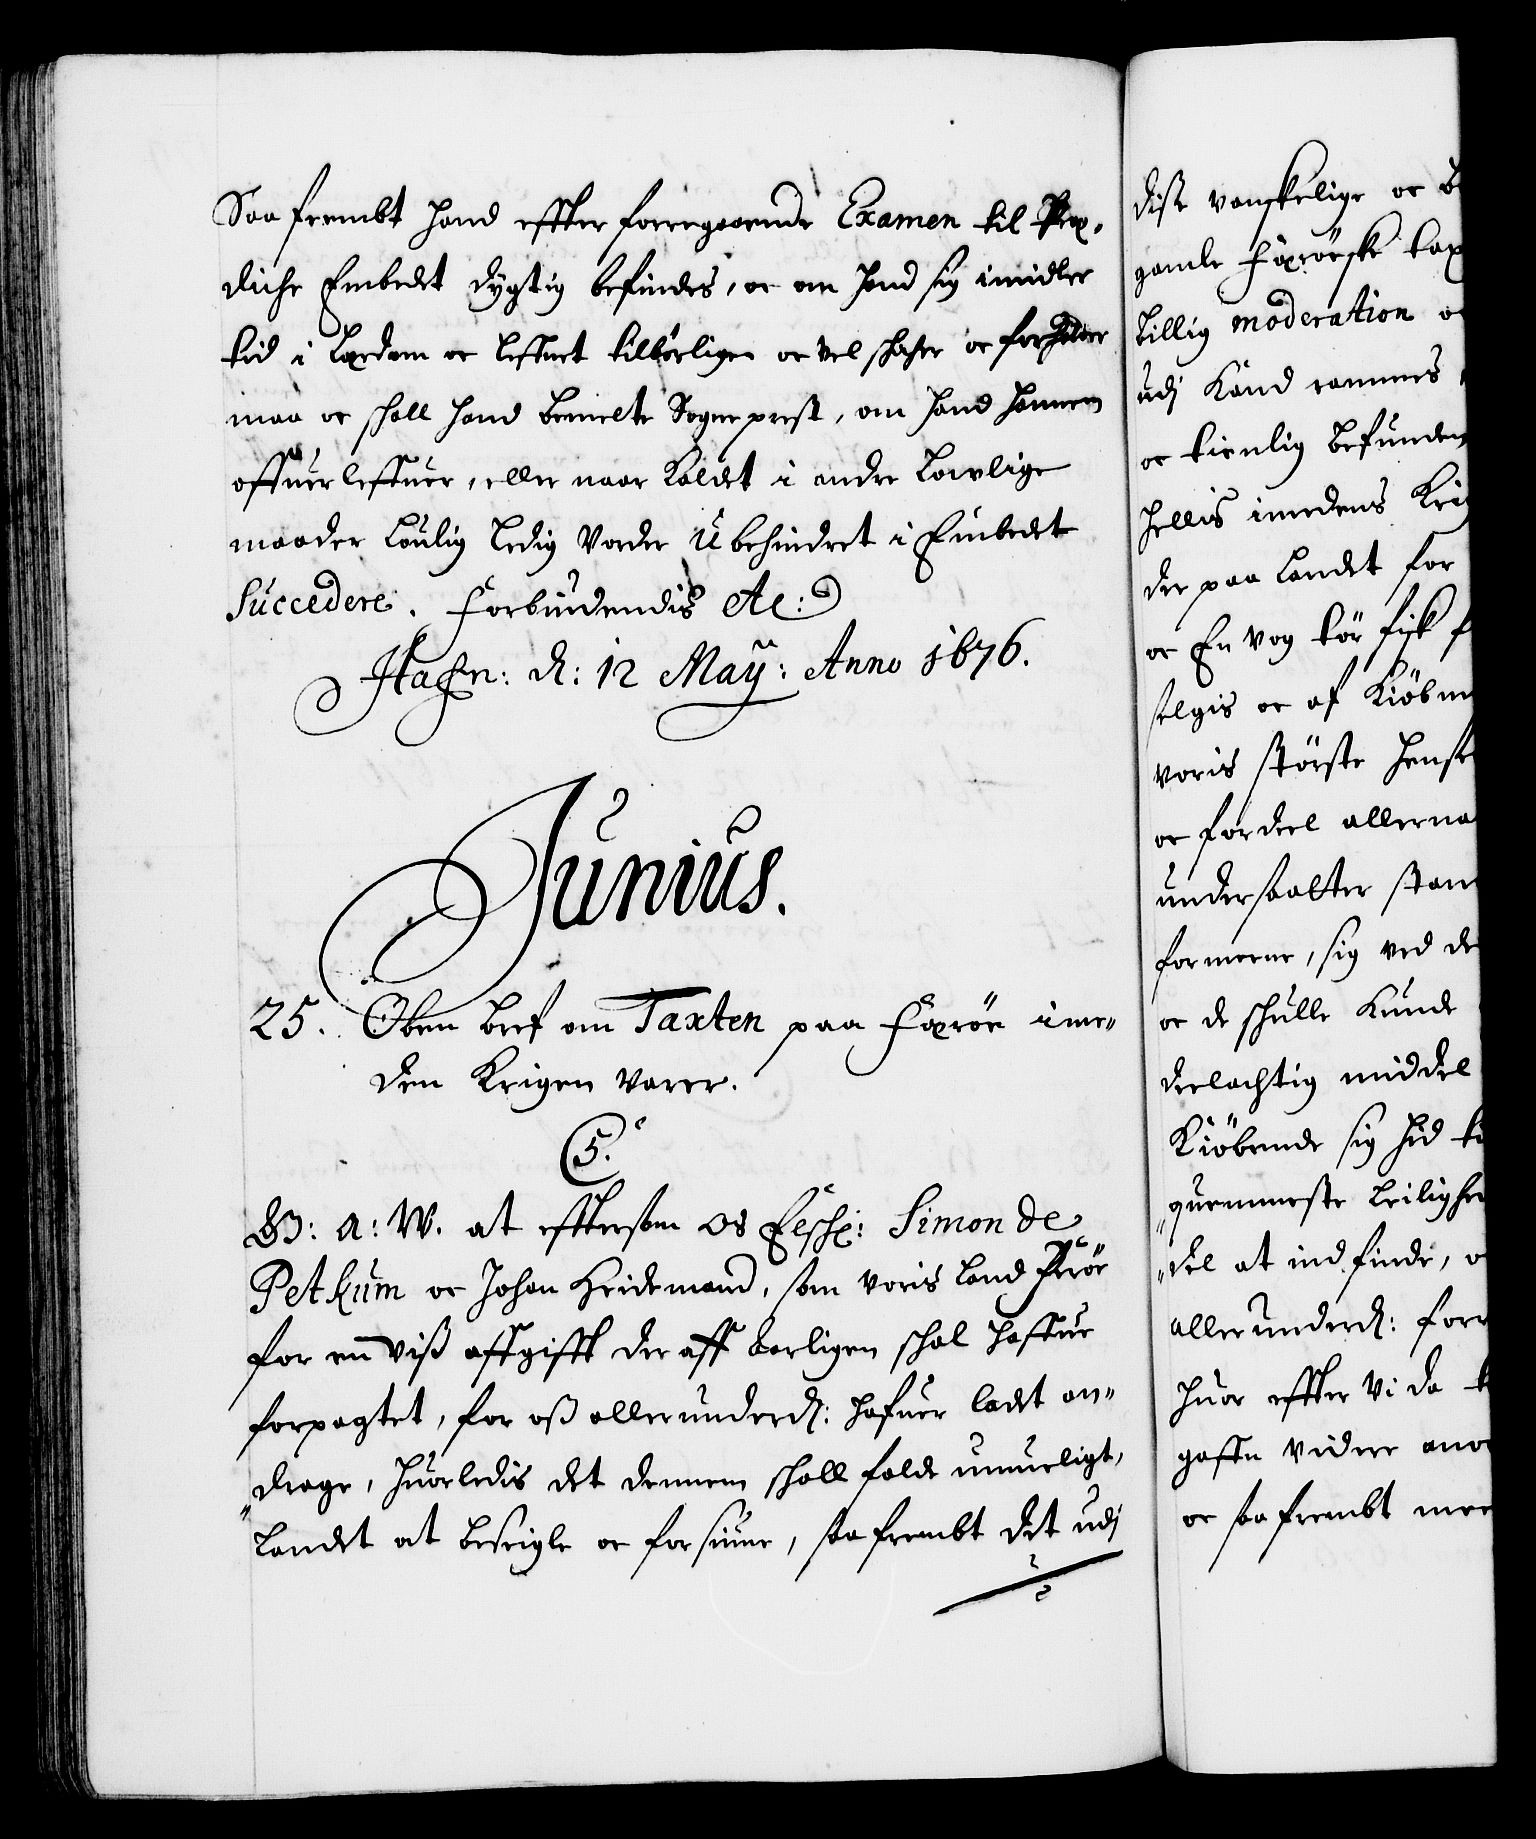 Saa frembt hand effter foregaaende Examen til Præ-
diche Embedet dygtig befindes, oc om hand sig imidler
tid i Lærdom oc leffnet tilbørligen oc vel schicher oc forholder
maa oc schall hand bemelte Sognepræst, om hand hannem
offuerleffuer, eller naar Kaldet i andre lowlige
maader Loulig Ledig vorder ubehindret i Embedet
Succedere. Forbindendis etc:
Hafn: d: 12 May: Anno 1676.
Junius.
25. Oben bref om Taxten paa Færøe ime-
den Krigen varer.
C5.
G: a: W. at effttersom os Elschel: Simon de
Petkum oc Johan Heidemand, som voris land Færöe
for en viß affgifft der aff aarligen schal haffue
forpagtet, for oß allerunderd: hafuer ladet an-
drage, huorledis det dennem schall falde umueligt,
Landet at beseigle oc forsiune, saa frembt det udj
diße vanskelige oc b
gamle Færöeske tax
billig moderation oc
udj Kand rammes
oc tienlig befunden
hellis imedens Kri
der paa Landet for
oc En vog tör fisk f
selgis oc af Kiöbm
voris störste hensi
oc fordeel allerna
undersaatter stan
formeene, sig ved de
oc de schulle Kunde
deelachtig middel
Kiöbende sig hid ti
quemmeste leilighe
del at indfinde, o
allerunderd: forr
huor effter vi da t
gaffn videre anor
oc saa frembt mee